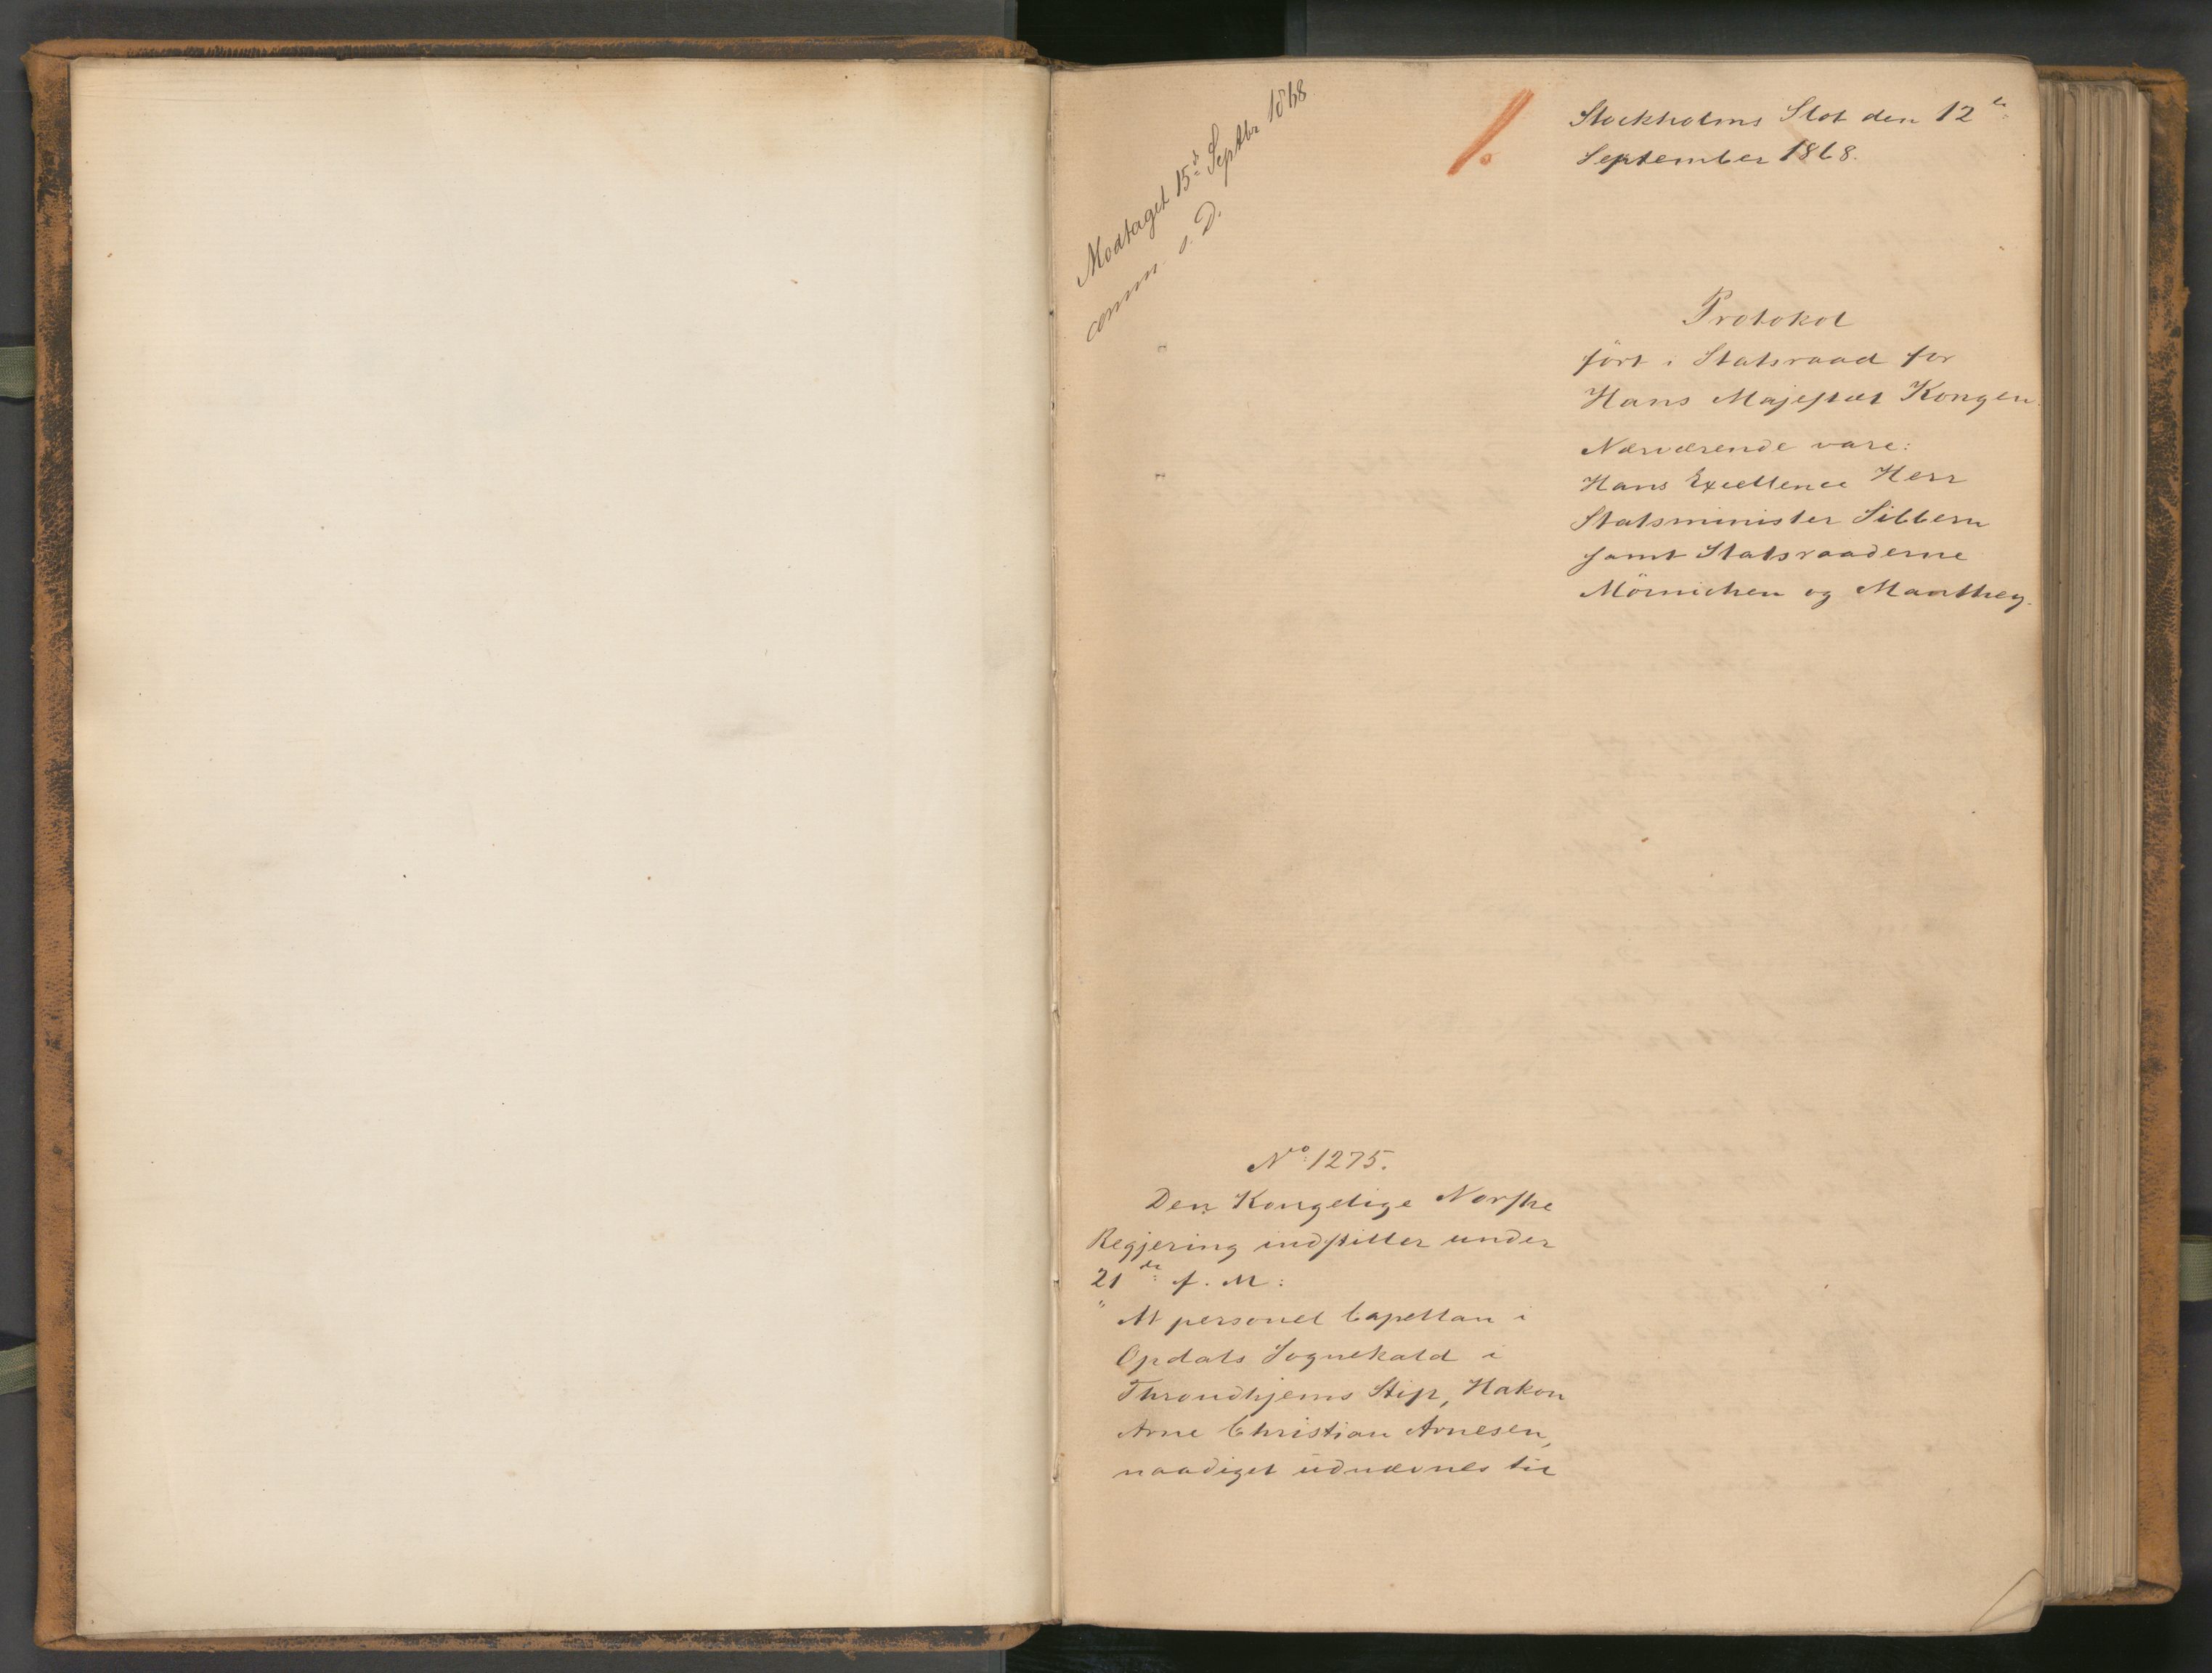 Modtaget 15d Septbr 1868
comm. s. D.
1.
Stockholms Slot den 12te
September 1868.
Protokol
ført i Statsraad for
Hans Majestæt Kongen.
Nærværende vare:
Hans Excellence Herr
Statsminister Sibbern
samt Statsraaderne
Mörnichen og Manthey.
No 1275.
Den Kongelige Norske
Regjering indstiller under
21de f. M:
"At personel Capellan i
Opdals Sognekald i
Throndhjems Stift, Hakon
Arne Christian Arnesen,
naadigst udnævnes til